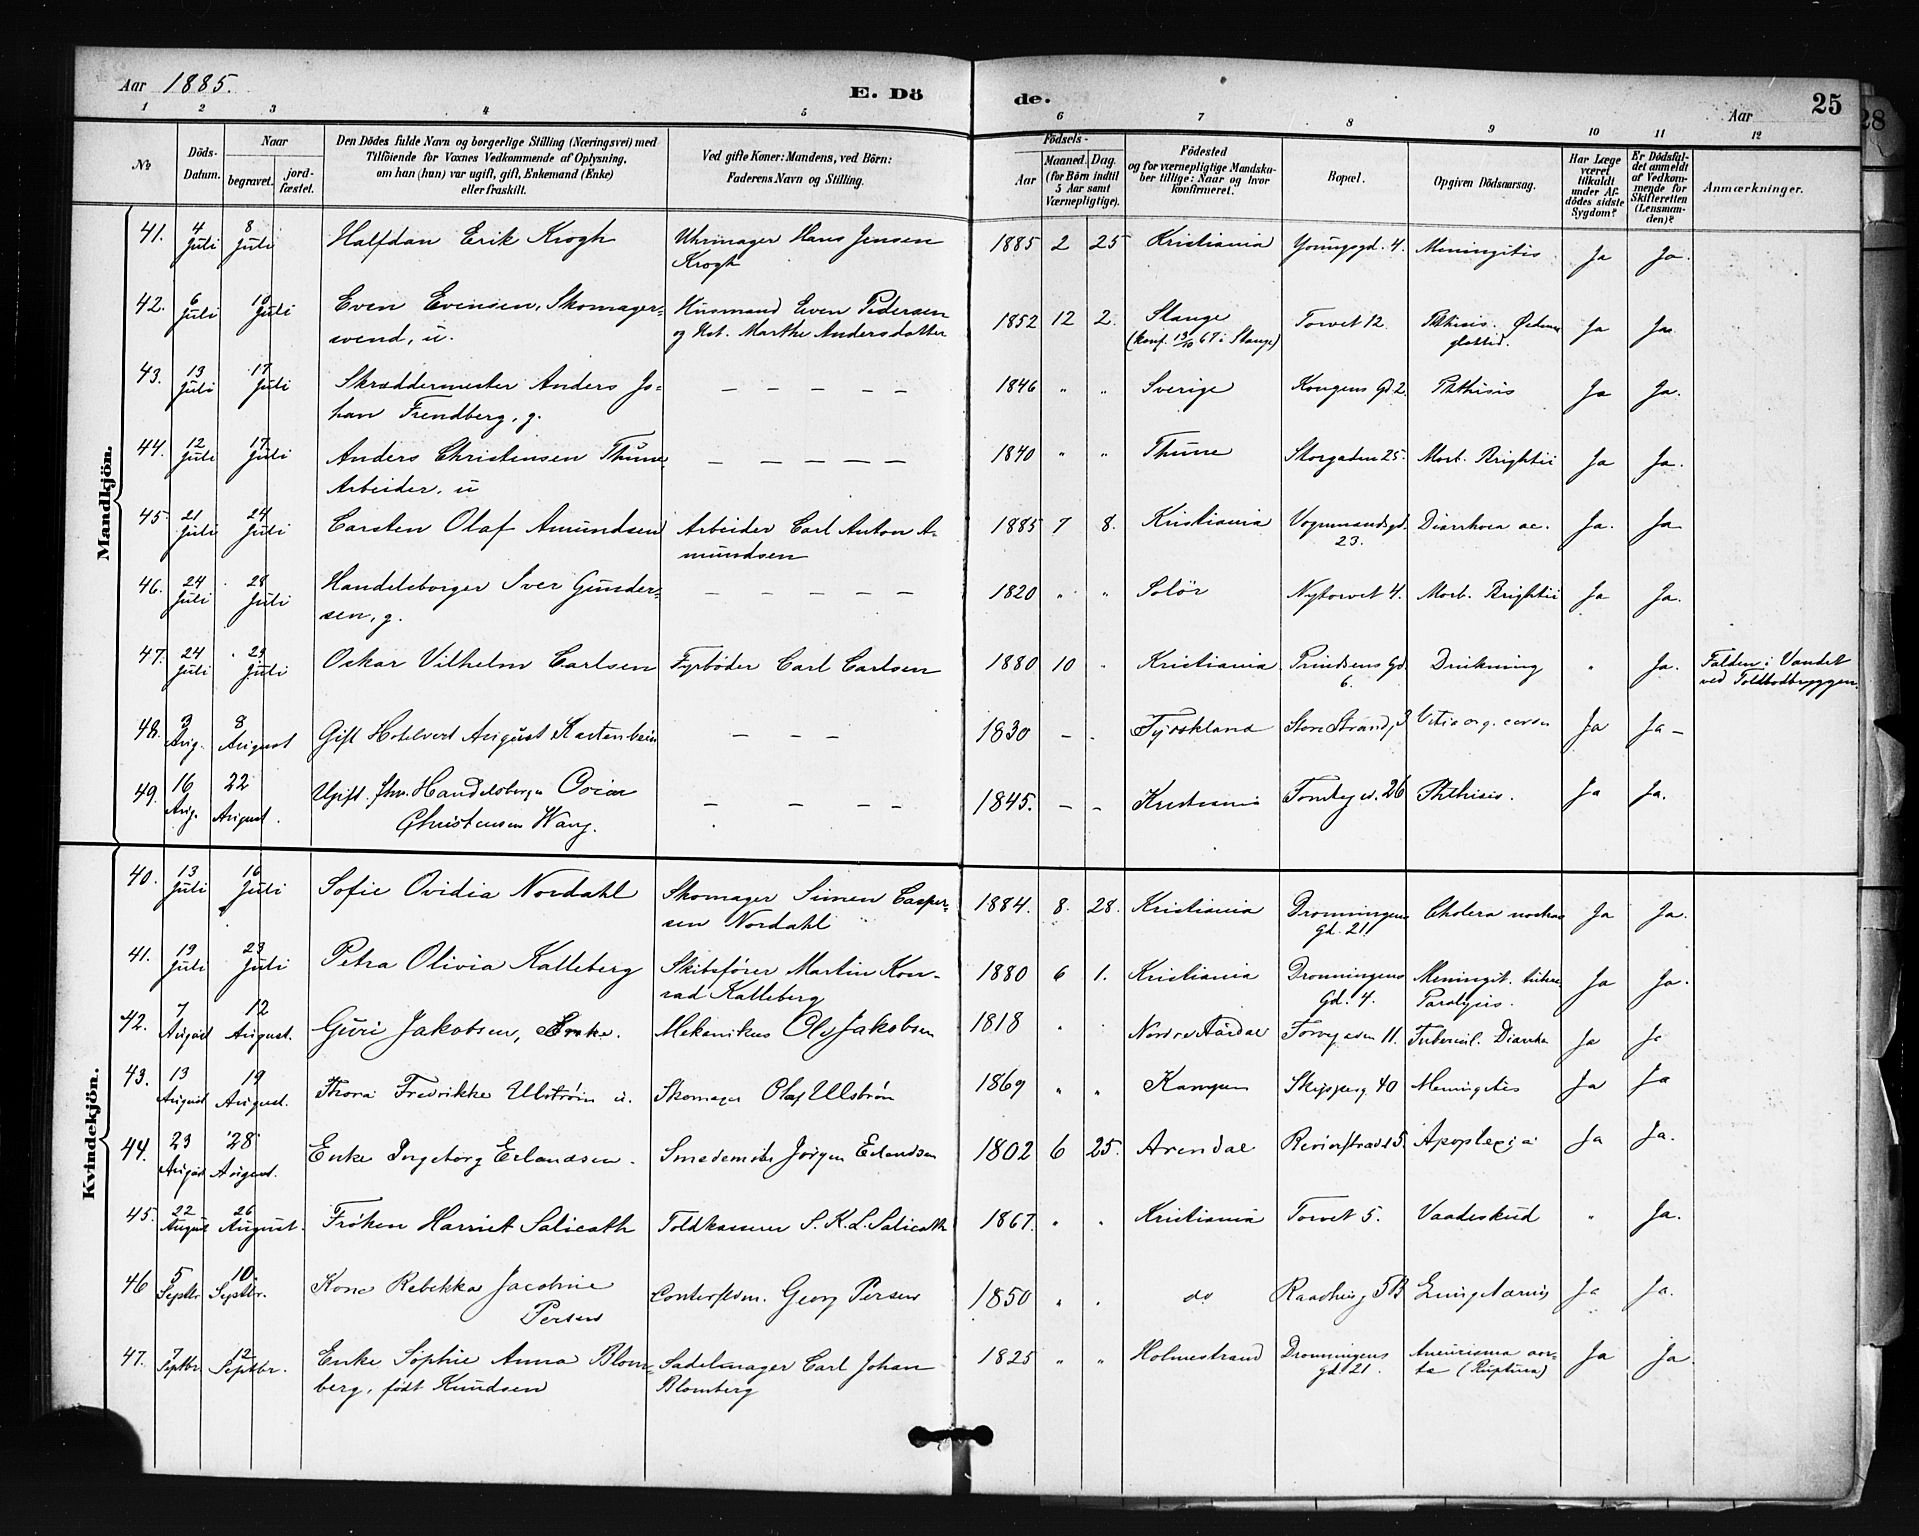 Aar 1885. E. Dö de. Aar 25
28
1 2 3 4 5 6 7 8 9 10 11 12
№ Döds-Datum. Naar begravet. jordfæstet.
Den Dödes fulde Navn og borgerlige Stilling (Næringsvei) med
Tilföiende for Voxnes Vedkommende af Oplysning,
om han (hun) var ugift, gift, Enkemand (Enke)
eller fraskilt.
Ved gifte Koner: Mandens, ved Börn:
Faderens Navn og Stilling.
Födsels-
Aar Maaned. Dag.
(for Börn indtil
5 Aar samt
Værnepligtige).
Födested
og for værnepligtige Mandska-
ber tillige: Naar og hvor
konfirmeret.
Bopæl.
Opgiven Dödsaarsag.
Har Læge
været
tilkaldt
under Af-
dödes sidste
Sygdom?
Er Dödsfal-
det anmeldt
af Vedkom-
mende for
Skifteretten
(Lensman-
den)?
Anmærkninger.
Mandkjön.
41. 4 Juli 8 Juli Halfdan Erik Krogh Uhrmager Hans Jensen 1885 2 25 Kristiania Youngsgd. 4. Meningitis Ja Ja.
Krogh
42. 6 Juli 10 Juli Even Evensen, Skomager- Husmand Even Pedersen 1852 12 2. Stange Torvet 12. Phthisis. Ja Ja.
svend, u. og Hst. Marthe Andersdatter (konf. 13/10 67 i Stange)
43. 13 Juli 17 Juli Skræddermester Anders Jo- — — — — — 1846 " " Sverige Kongens Gd 2. Phthisis Ja Ja.
han Trendberg, g.
44. 12 Juli 17 Juli Anders Christensen Thune — — — — — 1840 " " Thune Storgaden 25. Morb. Brightii Ja Ja.
Arbeider, u
45. 21 Juli 24 Juli Carsten Olaf Amundsen Arbeider Carl Anton A- 1885 7 8. Kristiania Vognmandsgd. Diarrhoea ac. Ja. Ja
mundsen 23.
46. 24 Juli 28 Juli Handelsborger Iver Gunder- — — — — — 1820 " " Solör Nytorvet 4. Morb. Brightii Ja Ja.
sen, g.
47. 24 Juli 29 Juli Oskar Vilhelm Carlsen Fyrböder Carl Carlsen 1880 10 " Kristiania Prindsens Gd Drukning " Ja. Falden i Vandet
6. ved Toldbodbryggen.
48. 3 Aug. 8 August Gift Hotelvert August Kastenbein — — — 1830 — — Tydskland Store Strandg. 3 Vitio org. cordis Ja Ja —
49. 16 Aug. 22 August. Ugift. fhv. Handelsborger — — — — 1845. — — Kristiania Tomtegd. 26 Phthisis. Ja Ja.
Christensen Wang.
Kvindekjön.
40. 13 Juli 16 Juli Sofie Ovidia Nordahl Skomager Simen Casper- 1884. 8. 28. Kristiania Dronningens Cholera nostras Ja Ja.
sen Nordahl Gd. 21
41. 19 Juli 23 Juli Petra Olivia Kalleberg Skibsfører Martin Kon- 1880 6 1. Kristiania Dronningens Meningit. Ja Ja.
rad Kalleberg Gd. 4. Paralysis.
42. 7 August 12 August. Guri Jakobsen, Enke. Mekanikus Ole Jakobsen 1818 " " Nordre Aurdal Torvgaden 11. Tubercul. Diarrhe Ja Ja
43. 13 August 19 August. Thora Fredrikke Ulstrøm u. Skomager Olaf Ulstrøm 1869 " " Kampen Skipperg. 40 Meningitis Ja Ja
44. 23 August 28 August. Enke Ingeborg Erlandsen. Smedemester Jörgen Erlandsen 1802 6 25. Arendal Revierstrædet 5. Apoplexia Ja Ja.
45. 22 August 26 August. Frøken Harriet Salicath Toldkasserer S. K. L. Salicath 1867. " " Kristiania Torvet 5. Vaadeskud " Ja.
46 5 Septbr. 10. Septbr. Kone Rebekka Jacobine Contorfldm. Georg Persen 1850 " " do Raadhusg 5B Ja Ja.
Persen
47. 7 Septbr. 12 Septbr. Enke Sophie Anna Blom- Sadelmager Carl Johan 1825 " " Holmestrand Dronningens Aneurisma aor- Ja Ja
berg, født Knudsen Blomberg gd. 21. ta (Ruptura)